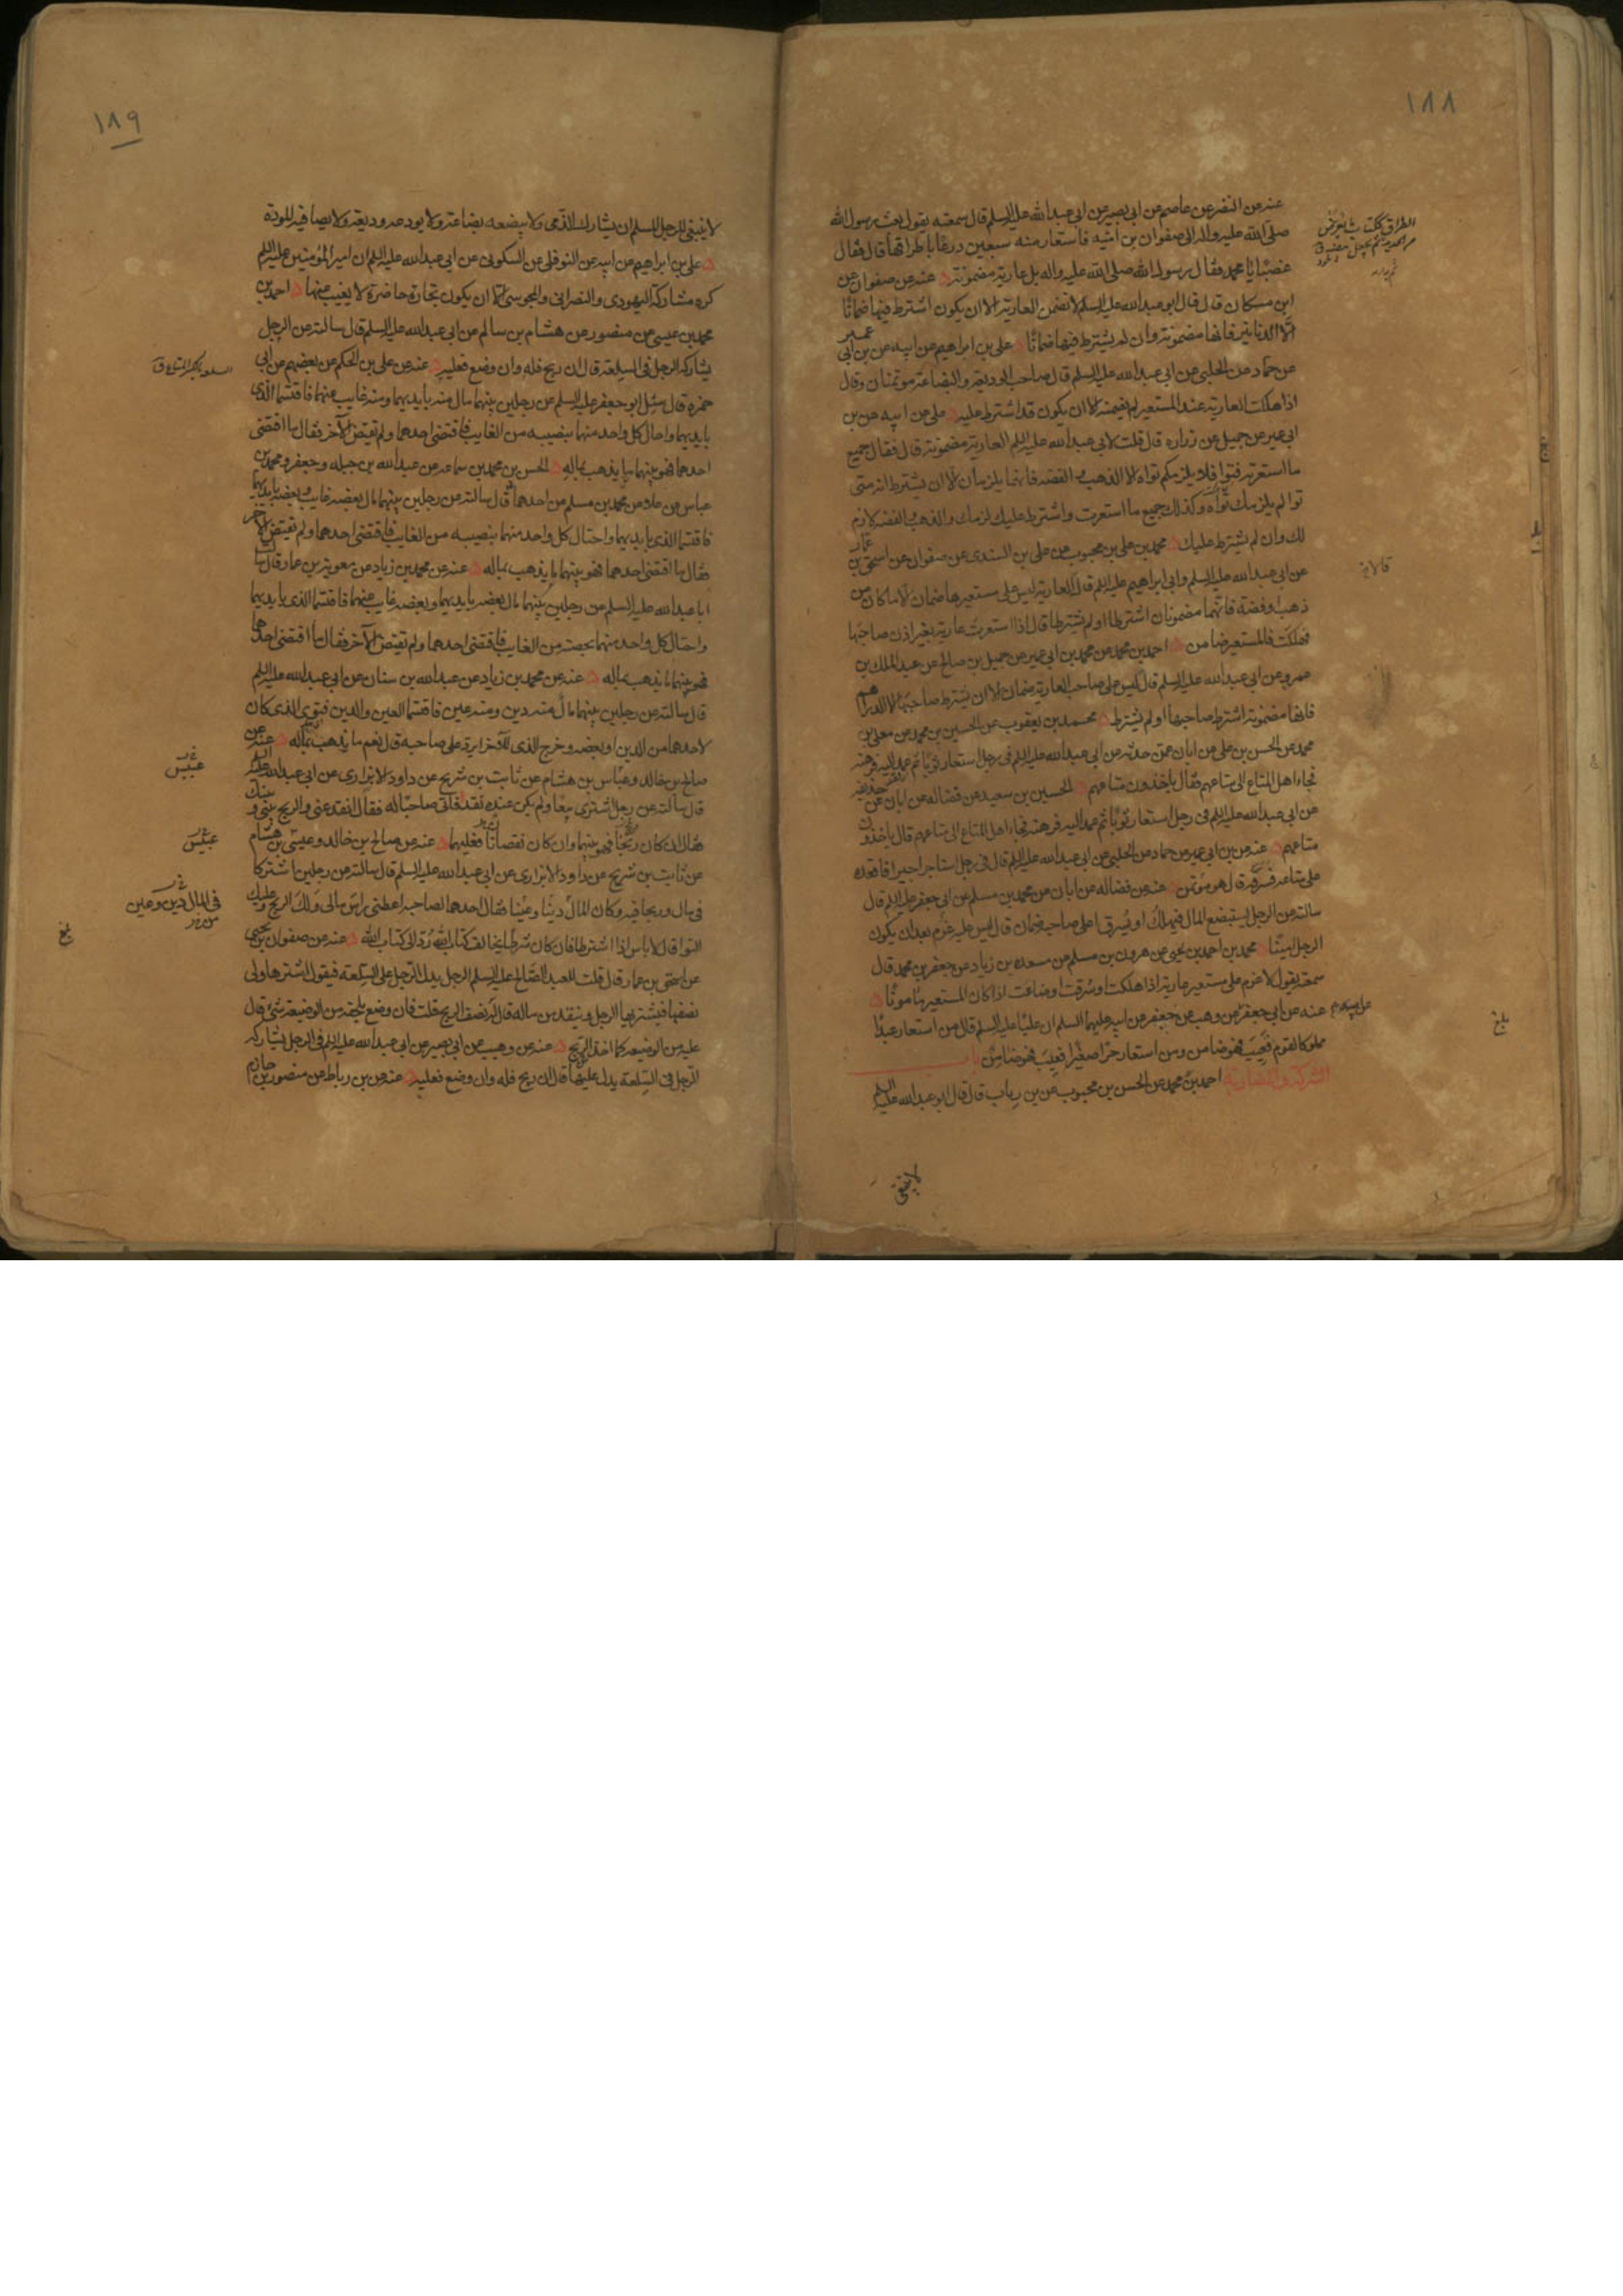 ١٨٨
عنه عن النضر عن عاصم عن ابى بصير عن ابى عبد الله عليه السلم قال سمعته يقول بعث رسول الله
صلى الله عليه واله الى صفوان بن امية فاستعار منه سبعين درعا باطراقها قال فقال
غصبا يا محمد فقال رسول الله صلى الله عليه واله بل عارية مضمونة عنه عن صفوان عن
ابن مسكان قال قال ابو عبد الله عليه السلم لا تضمن العارية الا ان يكون اشترط فيها ضمانا
الا الدنانير فانها مضمونة وان لم يشترط فيها ضمانا على بن ابراهيم عن ابيه عن بن ابى عمير
عن حماد عن الحلبى عن ابى عبد الله عليه السلم قال صاحب الوديعة والبضاعة مؤتمنان وقال
اذا هلكت العارية عند المستعير لم يضمنه الا ان يكون قد اشترط عليه على عن ابيه عن بن
ابى عمير عن جميل عن زراره قال قلت لابى عبد الله عليه السلم العارية مضمونة قال فقال جميع
ما استعرته فتوا فلا يلزمكم تواه الا الذهب والفضه فانهما يلزمان الا ان يشترط انه متى
توا لم يلزمك تواه وكذلك جميع ما استعرت واشترط عليك لزمك والذهب والفضه لازم
لك وان لم يشترط عليك محمد بن على بن محبوب عن على بن السندى عن صفوان عن اسحق بن عمار
عن ابى عبد الله عليه السلم وابى ابراهيم عليه السلم قال العارية ليس على مستعيرها ضمان الا ما كان من
ذهب او فضة فانهما مضمونان اشترطا او لم يشترطا قال اذا استعرت عارية بغير اذن صاحبها
فهلكت فالمستعير ضامن احمد بن محمد عن محمد بن ابى عمير عن جميل بن صالح عن عبد الملك بن
عمرو عن ابى عبد الله عليه السلم قال ليس على صاحب العارية ضمان الا ان يشترط صاحبها الا الدراهم
فانها مضمونة اشترط صاحبها او لم يشترط محمد بن يعقوب عن الحسين بن محمد عن معلى بن
محمد عن الحسن بن على عن ابان عمن حدثه عن ابى عبد الله عليه السلم فى رجل استعار ثوبا ثم عمد اليه فرهنه
فجاء اهل المتاع الى متاعهم فقال ياخذون متاعهم الحسين بن سعيد عن فضاله عن ابان عن حذيفه
عن ابى عبد الله عليه السلم فى رجل استعار ثوبا ثم عمد اليه فرهنه فجاء اهل المتاع الى متاعهم قال ياخذون
متاعهم عنه عن بن ابى عمير عن حماد عن الحلبى عن ابى عبد الله عليه السلم قال فى رجل استاجر اجيرا فاقعده
على متاعه فسرقه قال هو مؤتمن عنه عن فضاله عن ابان عن محمد بن مسلم عن ابى جعفر عليه السلم قال
سالته عن الرجل يستبضع المال فيهلك او يسرق اعلى صاحبه ضمان قال ليس عليه غرم بعد ان يكون
الرجل امينا محمد بن احمد بن يحيى عن هرون بن مسلم عن مسعده بن زياد عن جعفر بن محمد قال
سمعته يقول لا غرم على مستعير عارية اذا هلكت او سرقت او ضاعت اذا كان المستعير مامونا
عنه عن ابى جعفر عن وهب عن جعفر عن ابيه عليهما السلم ان عليا عليه السلم قال من استعار عبدا
مملوكا لقوم فعيب فهو ضامن ومن استعار حرا صغيرا فعيب فهو ضامن باب
الشركة والمضاربة احمد بن محمد عن الحسن بن محبوب عن بن رياب قال قال ابو عبد الله عليه السلم
لا ينبغى
بلغ
١٨٩
لا ينبغى للرجل المسلم ان يشارك الذمى ولا يبضعه بضاعة ولا يودعه وديعة ولا يصافيه المودة
على بن ابراهيم عن ابيه عن النوفلى عن السكونى عن ابى عبد الله عليه السلم ان امير المؤمنين عليه السلم
كره مشاركة اليهودى والنصرانى والمجوسى الا ان يكون تجارة حاضرة لا يغيب عنها احمد بن
محمد بن عيسى عن منصور عن هشام بن سالم عن ابى عبد الله عليه السلم قال سالته عن الرجل
يشاركه الرجل فى السلعة قال ان ربح فله وان وضع فعليه عنه عن على بن الحكم عن بعضهم عن ابى
حمزه قال سئل ابو جعفر عليه السلم عن رجلين بينهما مال منه بايديهما ومنه غايب عنهما فاقتسما الذى
بايديهما واحال كل واحد منهما بنصيبه من الغايب فاقتضى احدهما ولم يقتض الآخر فقال ما اقتضى
احدهما فهو بينهما ما يذهب بماله الحسن بن محمد بن سماعه عن عبد الله بن جبله وجعفر ومحمد بن
عباس عن علا عن محمد بن مسلم عن احدهما قال سالته عن رجلين بينهما مال بعضه غايب وبعضه بايديهما
فاقتسما الذى بايديهما واحتال كل واحد منهما بنصيبه من الغايب فاقتضى احدهما ولم يقتض الآخر
فقال ما اقتضى احدهما فهو بينهما ما يذهب بماله عنه عن محمد بن زياد عن معوية بن عمار قال سالت
ابا عبد الله عليه السلم عن رجلين بينهما مال بعضه بايديهما وبعضه غايب عنهما فاقتسما الذى بايديهما
واحتال كل واحد منهما بحصته من الغايب فاقتضى احدهما ولم يقتض الآخر فقال ما اقتضى احدهما
فهو بينهما ما يذهب بماله عنه عن محمد بن زياد عن عبد الله بن سنان عن ابى عبد الله عليه السلم
قال سالته عن رجلين بينهما مال منه دين ومنه عين فاقتسما العين والدين فتوى الذى كان
لاحدهما من الدين او بعضه وخرج الذى للآخر ايرد على صاحبه قال نعم ما يذهب بماله عنه عن
صالح بن خالد وعباس بن هشام عن ثابت بن شريح عن داود الابزارى عن ابى عبد الله عليه السلم
قال سالته عن رجل اشترى بيعا ولم يكن عنده نقد فاتى صاحبا له فقال انقد عنى والربح بينى وبينك
فقال ان كان ربحا فهو بينهما وان كان نقصانا فعليهما عنه عن صالح بن خالد وعيسى بن هشام
عن ثابت بن شريح عن داود الابزارى عن ابى عبد الله عليه السلم قال سالته عن رجلين اشتركا
فى مال وربحا فيه وكان المال دينا وعينا فقال احدهما لصاحبه اعطنى راس مالى ولك الربح وعليك
التوا قال لا باس اذا اشترطا فان كان شرطا يخالف كتاب الله رد الى كتاب الله عنه عن صفوان بن يحيى
عن اسحق بن عمار قال قلت للعبد الصالح عليه السلم الرجل يدل الرجل على السلعة فيقول اشترها ولى
نصفها فيشتريها الرجل وينقد من ماله قال له نصف الربح قلت فان وضع يلحقه من الوضيعة شئ قال
عليه من الوضيعه كما اخذ الربح عنه عن وهيب عن ابى بصير عن ابى عبد الله عليه السلم فى الرجل يشاركه
الرجل فى السلعة يدل عليها قال ان ربح فله وان وضع فعليه عنه عن بن رباط عن منصور بن حازم
عبيس
عبيس
فى المال دين وعين
بلغ